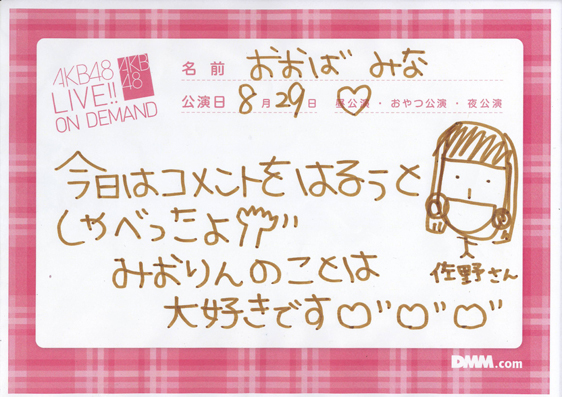 AKB48
LIVE!!
ON DEMAND
AKB
48
名前 おおば みな
公演日 8月29日 ♡公演・おやつ公演・夜公演
今日はコメントをはるっと
しゃべったよ
みおりんのことは
大好きです♡♡♡
佐野さん
DMM.com